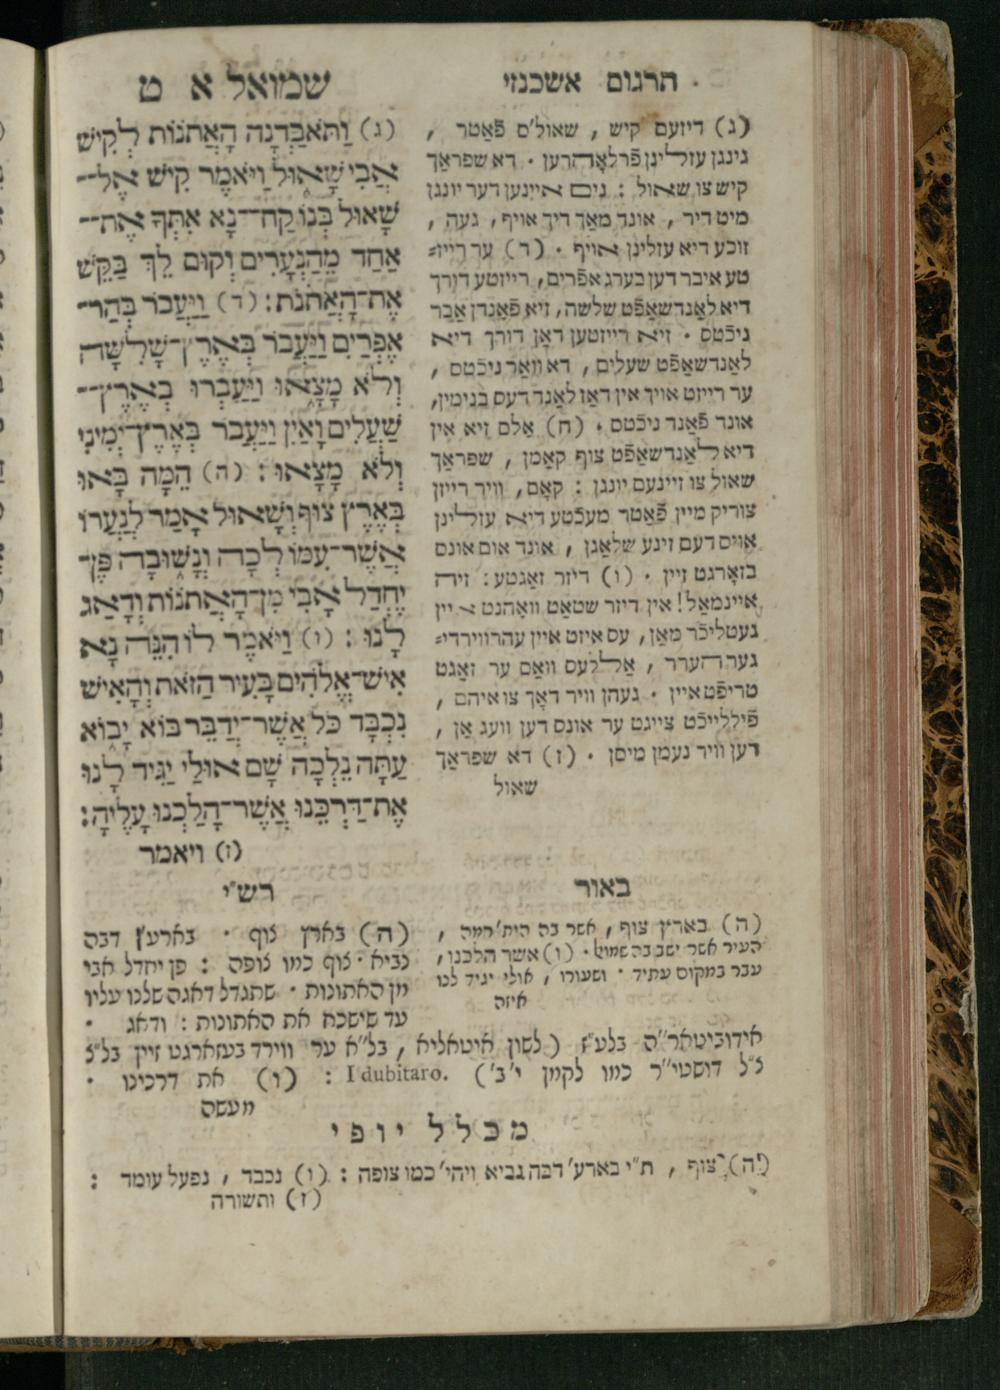 תרגום אשכנזי
שמואל א ט
(ג) דיזעם קיש , שאול'ס פֿאַטר ,
גינגן עזלינן פֿרלאָהרען . דא שפראַך
קיש צו שאול : נים איינען דער יונגן
מיט דיר , אונד מאַך דיך אויף , געה ,
זוכע דיא עזלינן אויף . (ד) ער רייז=
טע איבר דען בערג אפרים, רייזטע דורך
דיא לאַנדשאַפֿט שלשה, זיא פֿאַנדן אַבר
ניכֿטס . זיא רייזטען דאַן דורך דיא
לאַנדשאַפֿט שעלים , דא וואר ניכֿטס ,
ער רייזט אויך אין דאז לאַנד דעס בנימין,
אונד פֿאַנד ניכֿטס . (ה) אלס זיא אין
דיא לאַנדשאַפֿט צוף קאַמן , שפראַך
שאול צו זיינעם יונגן : קאָם, וויר רייזן
צוריק מיין פֿאַטר מעכֿטע דיא עזלינן
אויס דעם זינע שלאַגן , אונד אום אונס
בזאָרגט זיין . (ו) דיזר זאַגטע : זיה
איינמאַל! אין דיזר שטאַט וואָהנט איין
געטליכֿר מאַן, עס איזט איין עהרווירדי=
גער הערר , אַללעס וואָס ער זאַגט
טריפֿט איין . געהן וויר דאָך צו איהם ,
פֿיללייכֿט צייגט ער אונס דען וועג אַן ,
דען וויר נעמן מיסן . (ז) דא שפראַך
שאול
(ג) וַתֹּאבַדְנָה הָאֲתֹנוֹת לְקִישׁ
אֲבִי שָׁאוּל וַיֹּאמֶר קִישׁ אֶל־
שָׁאוּל בְּנוֹ קַח־נָא אִתְּךָ אֶת־
אַחַד מֵהַנְּעָרִים וְקוּם לֵךְ בַּקֵּשׁ
אֶת־הָאֲתֹנֹת: (ד) וַיַּעֲבֹר בְּהַר־
אֶפְרַיִם וַיַּעֲבֹר בְּאֶרֶץ־שָׁלִשָׁה
וְלֹא מָצָאוּ וַיַּעַבְרוּ בְאֶרֶץ־
שַׁעֲלִים וָאַיִן וַיַּעֲבֹר בְּאֶרֶץ־יְמִינִי
וְלֹא מָצָאוּ : (ה) הֵמָּה בָּאוּ
בְּאֶרֶץ צוּף וְשָׁאוּל אָמַר לְנַעֲרוֹ
אֲשֶׁר־עִמּוֹ לְכָה וְנָשׁוּבָה פֶּן־
יֶחְדַּל אָבִי מִן־הָאֲתֹנוֹת וְדָאַג
לָנוּ : (ו) וַיֹּאמֶר לוֹ הִנֵּה נָא
אִישׁ־אֱלֹהִים בָּעִיר הַזֹּאת וְהָאִישׁ
נִכְבָּד כֹּל אֲשֶׁר־יְדַבֵּר בּוֹא יָבוֹא
עַתָּה נֵלְכָה שָּׁם אוּלַי יַגִּיד לָנוּ
אֶת־דַּרְכֵּנוּ אֲשֶׁר־הָלַכְנוּ עָלֶיהָ:
(ז) ויאמר
באור
(ה) בארץ צוף , אשר בה הית' רמה ,
העיר אשר ישב בה שמואל . (ו) אשר הלכנו,
עבר במקום עתיד . ושעורו , אולי יגיד לנו
איזה
רש"י
(ה) בארץ צוף . בארעא דבה
נביא . צוף כמו צופה : פן יחדל אבי
מן האתונות . שתגדל דאגה שלנו עליו
עד שישכח את האתונות : ודאג .
אידוביטאר"ה בלע"ז (לשון איטאליא , בל"א ער ווירד בעזארגט זיין בל"צ
צ"ל דושטי"ר כמו לקמן י'ב') I dubitaro. : (ו) את דרכינו .
מעשה
מכלל יופי
(ה) צוף , ת"י בארע' דבה נביא ויהי' כמו צופה : (ו) נכבד , נפעל עומד :
(ז) ותשורה